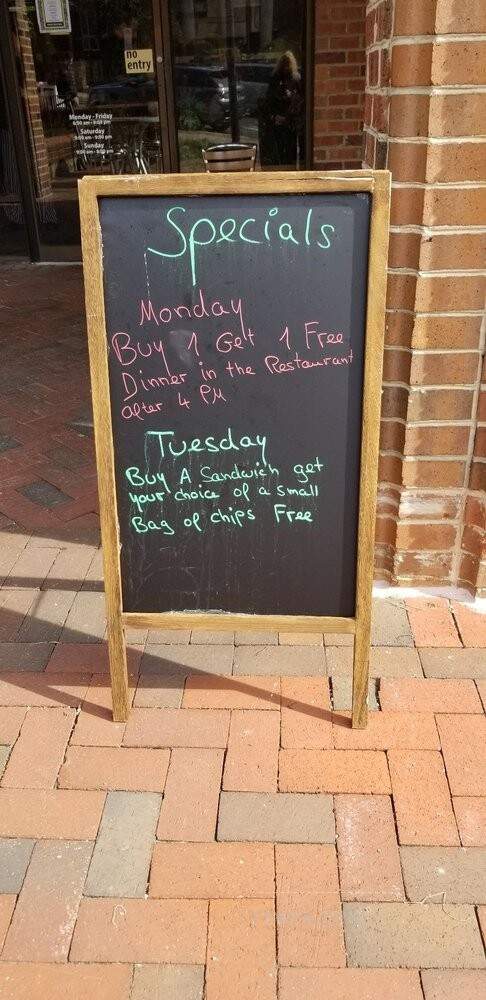 no
entry
Monday - Friday
Saturday
Sunday
Specials
Monday
Buy 1 Get 1 Free
Dinner in the Restaurant
after 4 PM
Tuesday
Buy A Sandwich get
your choice of a small
Bag of chips Free